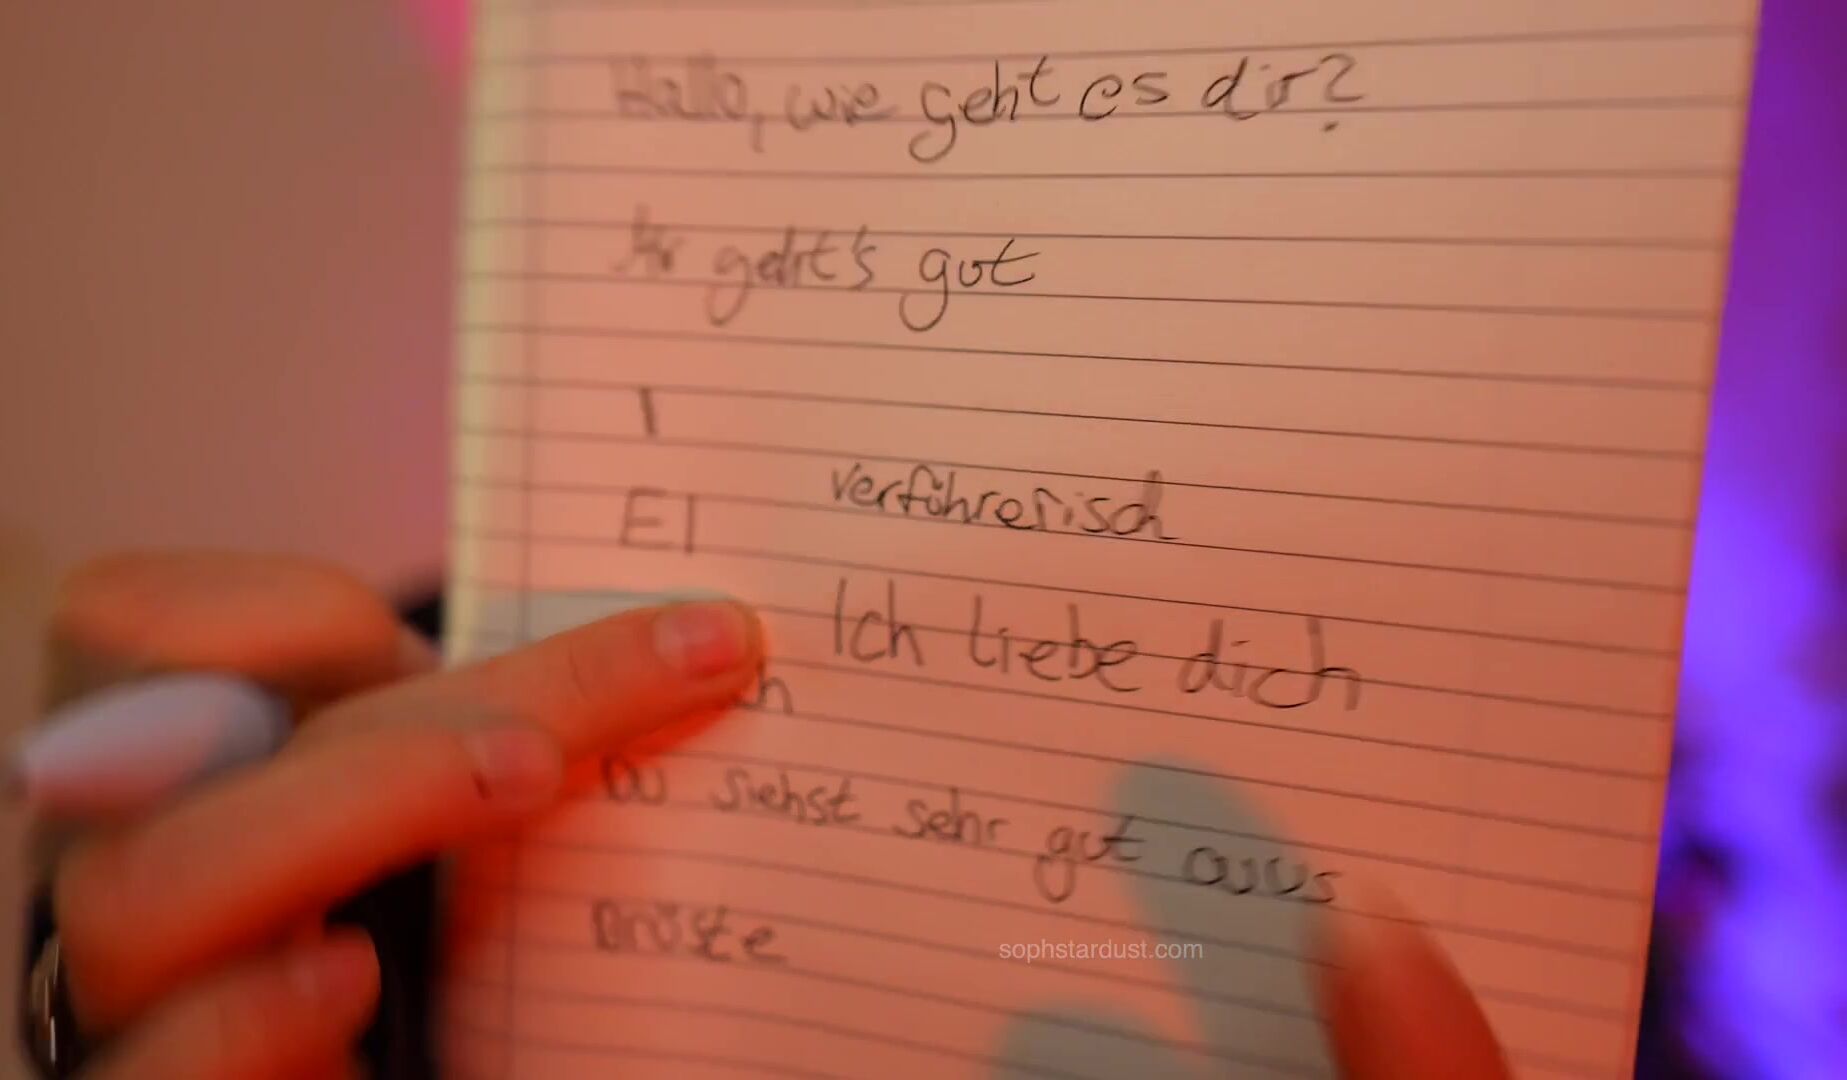 Hallo, wie geht es dir?
geht's gut
I
verführerisch
EI
Ich liebe dich
Du siehst sehr gut aus
Brüste
sophstardust.com